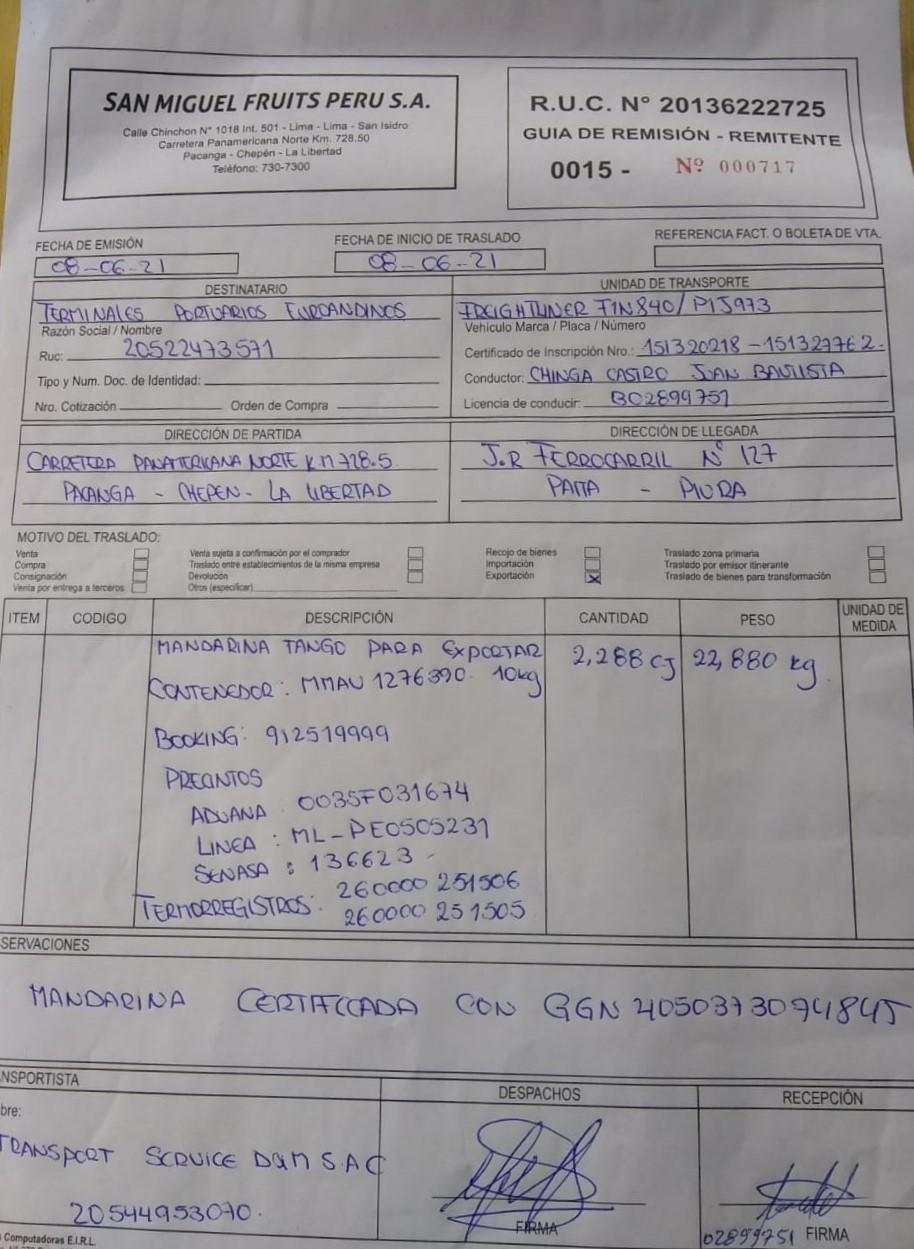 SAN MIGUEL FRUITS PERU S.A.
Calle Chinchon N° 1018 Int. 501 - Lima - Lima - San Isidro
Carretera Panamericana Norte Km. 728.50
Pacanga - Chepén - La Libertad
Teléfono: 730-7300
R.U.C. N° 20136222725
GUIA DE REMISIÓN - REMITENTE
0015 - Nº 000717
FECHA DE EMISIÓN
08-06-21
FECHA DE INICIO DE TRASLADO
08-06-21
REFERENCIA FACT. O BOLETA DE VTA.
DESTINATARIO
TERMINALES PORTUARIOS EUROANDINOS
Razón Social / Nombre
Ruc: 20522473571
Tipo y Num. Doc. de Identidad:
Nro. Cotización Orden de Compra
UNIDAD DE TRANSPORTE
FREIGHTLINER F1N840/P1J973
Vehículo Marca / Placa / Número
Certificado de Inscripción Nro.: 151320218-151327762-
Conductor: CHINGA CASTRO JUAN BAUTISTA
Licencia de conducir: B02899751
DIRECCIÓN DE PARTIDA
CARRETERA PANAMERICANA NORTE KM 728.5
PACANGA - CHEPEN - LA LIBERTAD
DIRECCIÓN DE LLEGADA
J.R FERROCARRIL N° 127
PAITA - PIURA
MOTIVO DEL TRASLADO:
Venta
Compra
Consignación
Venta por entrega a terceros
Venta sujeta a confirmación por el comprador
Traslado entre establecimientos de la misma empresa
Devolución
Otros (especificar)
Recojo de bienes
Importación
Exportación X
Traslado zona primaria
Traslado por emisor itinerante
Traslado de bienes para transformación
ITEM CODIGO DESCRIPCIÓN CANTIDAD PESO UNIDAD DE MEDIDA
MANDARINA TANGO PARA EXPORTAR 2,288 CJ 22,880 kg
CONTENEDOR: MMAU 1276390 10kg
BOOKING: 912519999
PRECINTOS
ADUANA 0035F031674
LINEA : ML-PE0505231
SENASA : 136623
TERMORREGISTROS: 260000 251506
260000 251505
SERVACIONES
MANDARINA CERTIFICADA CON GGN 4050373094845
NSPORTISTA
bre:
TRANSPORT SERVICE D&M S.A.C
20544953070.
DESPACHOS
FIRMA
RECEPCIÓN
02899751 FIRMA
Computadoras E.I.R.L.